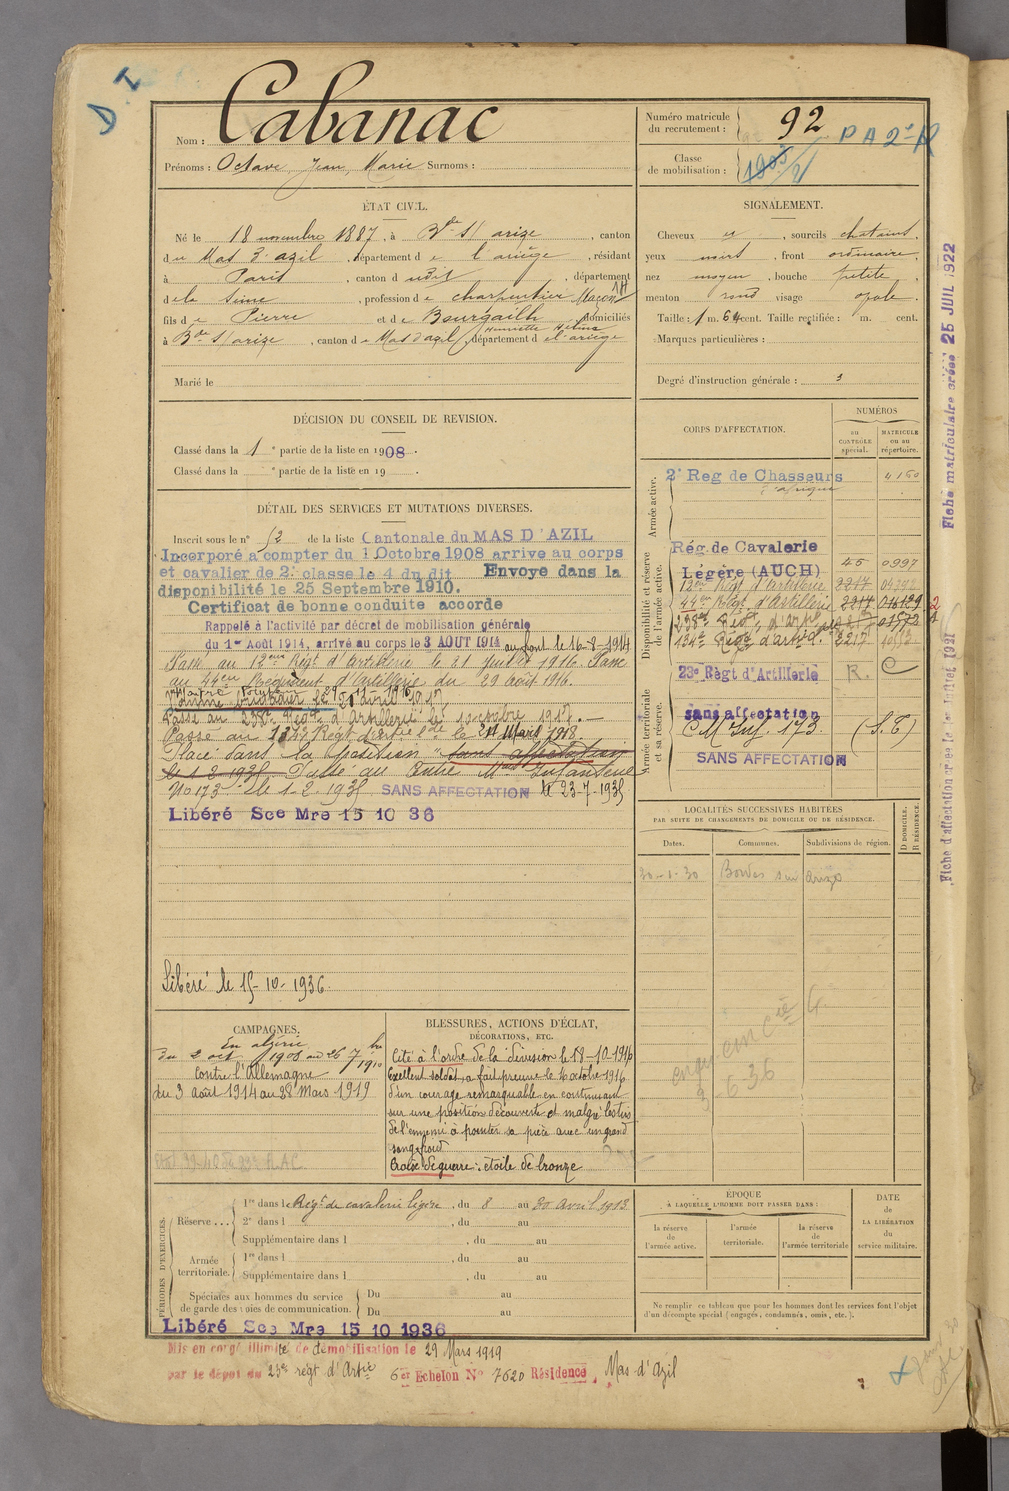 D. I
Nom : Cabanac
Prénoms : Octave Jean Marie Surnoms :
Numéro matricule du recrutement : 92
P A 2e R
Classe de mobilisation :
ÉTAT CIVIL.
Né le 18 novembre 1887, à Bdes s/ arize, canton
du Mas d'azil, département de l'ariège, résidant
à Paris, canton du dit, département
de la Seine, profession de charpentier Maçon
fils de Pierre et de Bourgailh domiciliés
Henriette Helina
à Bdes s/ arize, canton de Mas d'azil, département de l'ariège
Marié le
SIGNALEMENT.
Cheveux et, sourcils chatains,
yeux noirs, front ordinaire,
nez moyen, bouche petite,
menton rond visage ovale.
Taille : 1 m. 64 cent. Taille rectifiée : m. cent.
Marques particulières :
Degré d'instruction générale : 3
DÉCISION DU CONSEIL DE REVISION.
Classé dans la 1e partie de la liste en 1908.
Classé dans la e partie de la liste en 19 .
DÉTAIL DES SERVICES ET MUTATIONS DIVERSES.
Inscrit sous le n° 52 de la liste Cantonale du MAS D'AZIL
Incorporé a compter du 1 Octobre 1908 arrive au corps
et cavalier de 2e classe le 4 du dit Envoye dans la
disponibilité le 25 Septembre 1910.
Certificat de bonne conduite accorde
Rappelé à l'activité par décret de mobilisation générale
du 1er Août 1914, arrivé au corps le 3 AOUT 1914 au front le 16-8-1914
Passé au 12eme Régt d'artillerie le 21 juillet 1916. Passé
au 44eme Régiment d'Artillerie du 29 Août 1916.
Passé au 238e Régt d'Artillerie le 1 octobre 1917.
Passé au 134e Régt d'Artie le 21 Mars 1918.
Placé dans la position "sans affectation
le 1-2-1935. Passe au Centre Mobre Infanterie
No 173 le 1-2-1935 SANS AFFECTATION le 23-7-1935
Libéré Sce Mre 15 10 36
Libéré le 15-10-1936.
CORPS D'AFFECTATION.
NUMÉROS
AU CONTRÔLE spécial.
MATRICULE ou au répertoire.
Armée active.
2e Reg de Chasseurs 4160
d'afrique
Disponibilité et réserve de l'armée active.
Rég. de Cavalerie
Légère (AUCH) 45 0997
12eme Régt d'artillerie 2217
44eme Régt d'Artillerie 2217
238eme Régt d'artie
134e Régt d'artie 2217
Armée territoriale et sa réserve.
23e Règt d'Artillerie R. C
sans affectation
C M Inf. 173. (S.E)
SANS AFFECTATION
LOCALITÉS SUCCESSIVES HABITÉES
PAR SUITE DE CHANGEMENTS DE DOMICILE OU DE RÉSIDENCE.
Dates. Communes. Subdivisions de région. D DOMICILE. R RÉSIDENCE.
20-1-30 Bordes sur arize
3-6-36
CAMPAGNES.
En algérie
du 2 oct 1908 au 26 7bre 1910
Contre l'Allemagne
du 3 août 1914 au 28 Mars 1919
BLESSURES, ACTIONS D'ÉCLAT,
DÉCORATIONS, ETC.
Cité à l'ordre de la division le 18-10-1916
Excellent soldat, a fait preuve le 4 octobre 1916
d'un courage remarquable en continuant
sur une position découverte et malgré les tirs
de l'ennemi à pointer sa pièce avec un grand
sang froid
Croix de guerre : étoile de bronze
PÉRIODES D'EXERCICES.
Réserve ... 1re dans le Régt de cavalerie légère, du 8 au 30 avril 1913
2e dans l , du au
Supplémentaire dans l , du au
Armée territoriale. 1re dans l , du au
Supplémentaire dans l , du au
Spéciales aux hommes du service de garde des voies de communication. Du au
Du au
ÉPOQUE
A LAQUELLE L'HOMME DOIT PASSER DANS :
la réserve de l'armée active.
l'armée territoriale.
la réserve de l'armée territoriale
DATE DE LA LIBÉRATION du service militaire.
Ne remplir ce tableau que pour les hommes dont les services font l'objet
d'un décompte spécial (engagés, condamnés, omis, etc.).
Libéré Sce Mre 15 10 1936
Mis en congé illimité de démobilisation le 29 Mars 1919
par le dépot du 23e regt d'Artie 6er Echelon N° 7620 Résidence, Mas d'Azil
Fiche matriculaire créée 25 JUIL 1922